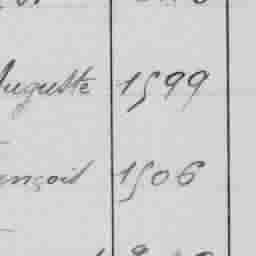 Auguste 1599
ançois 1506